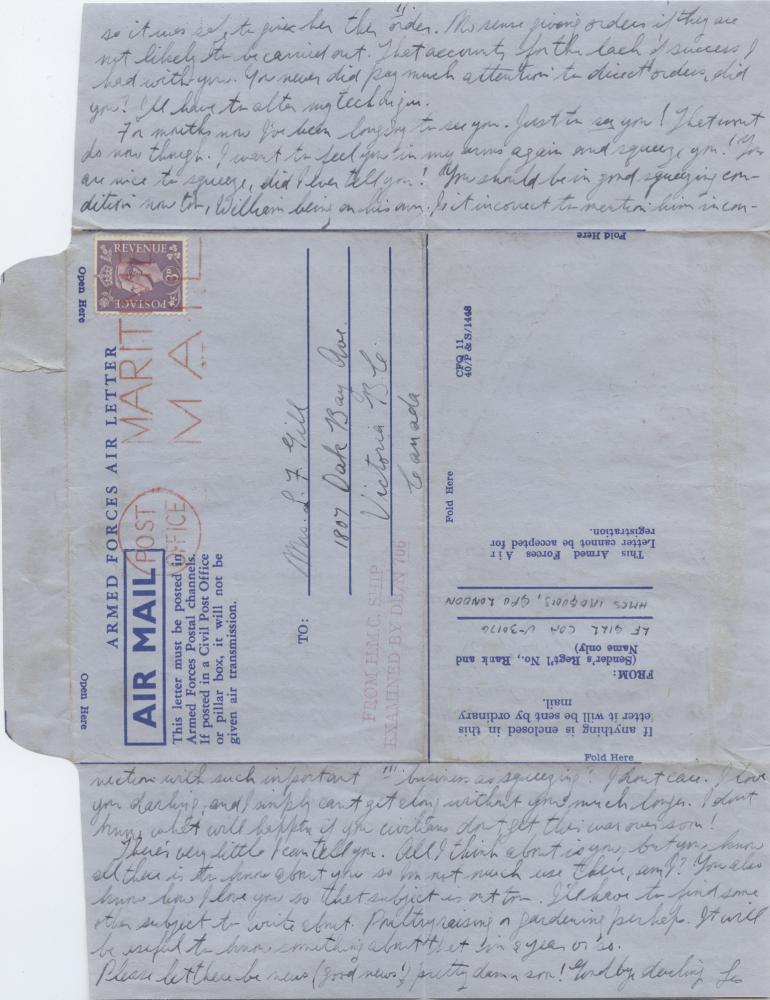 so it was safe to give her the order. No sense giving orders if they are
not likely to be carried out. That accounts for the lack of success I
had with you. You never did pay much attention to direct orders, did
you? I'll have to alter my technique.
For months now I've been longing to see you. Just to see you! That won't
do now though. I want to feel you in my arms again and squeeze you! You
are nice to squeeze, did I ever tell you! You should be in good squeezing con-
dition now too, William being on his own. Is it incorrect to mention him in con-
Fold Here
Open Here
REVENUE
3D
POSTAGE
ARMED FORCES AIR LETTER
MARIT
MAIL
POST
OFFICE
AIR MAIL
This letter must be posted in
Armed Forces Postal channels.
If posted in a Civil Post Office
or pillar box, it will not be
given air transmission.
Open Here
TO:
Mrs. L. F. Gill
1807 Oak Bay Ave.
Victoria B.C.
Canada
FROM H.M.C. SHIP
EXAMINED BY DD/N 706
CFQ 11
40/P & S/1448
Fold Here
This Armed Forces Air
Letter cannot be accepted for
registration.
HMCS IROQUOIS, GPO LONDON
LF GILL CDR V-30176
(Sender's Regt'l No., Rank and
Name only)
FROM:
If anything is enclosed in this
letter it will be sent by ordinary
mail.
Fold Here
nection with such important business as squeezing? I don't care. I love
you darling, and I simply can't get along without you much longer. I don't
know what will happen if you civilians don't get this war over soon!
There's very little I can tell you. All I think about is you, but you know
all there is to know about you so I'm not much use there, am I? You also
know how I love you so that subject is out too. I'll have to find some
other subject to write about. Poultry raising or gardening perhaps. It will
be useful to know something about that in a year or so.
Please let there be news (good news!) pretty damn soon! Goodbye darling Les